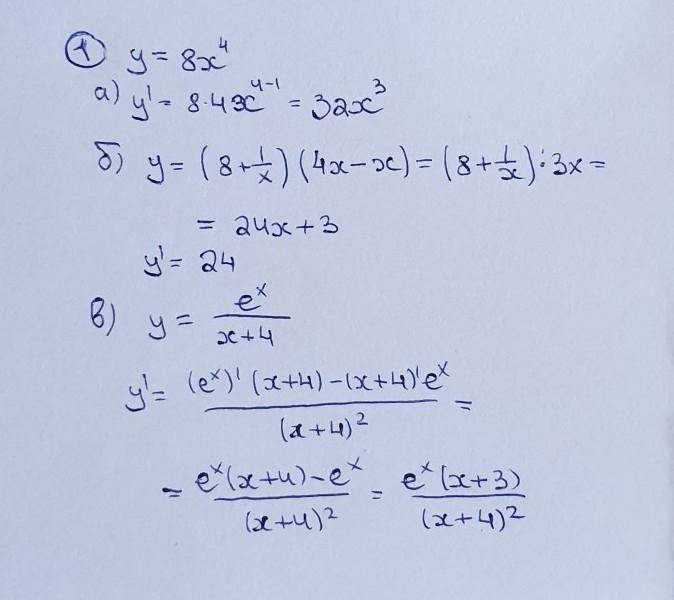 ① y = 8x⁴
а) y' = 8·4x⁴⁻¹ = 32x³
б) y = (8 + 1/x)(4x − x) = (8 + 1/x) : 3x =
= 24x + 3
y' = 24
в) y = eˣ/(x+4)
y' = ((eˣ)'(x+4) − (x+4)'eˣ)/(x+4)² =
= (eˣ(x+4) − eˣ)/(x+4)² = eˣ(x+3)/(x+4)²